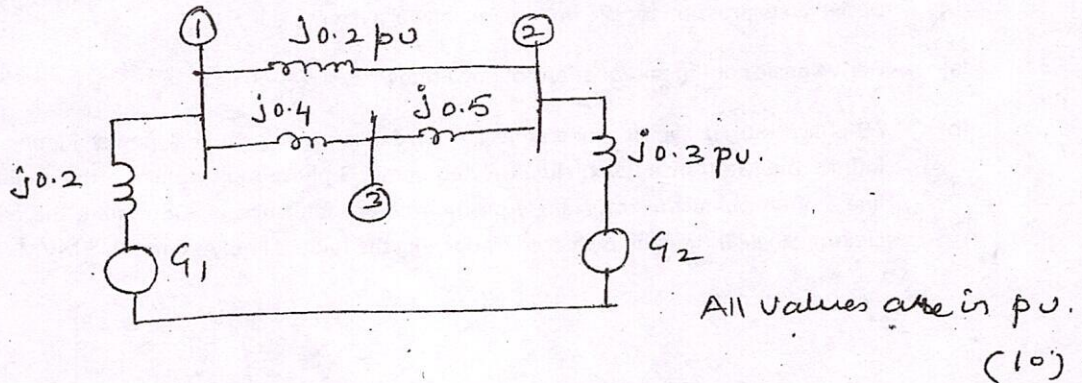 ① j0.2 pu ②
j0.4 j0.5
j0.2 ③ j0.3 pu.
G1 G2
All values are in pu.
(10)